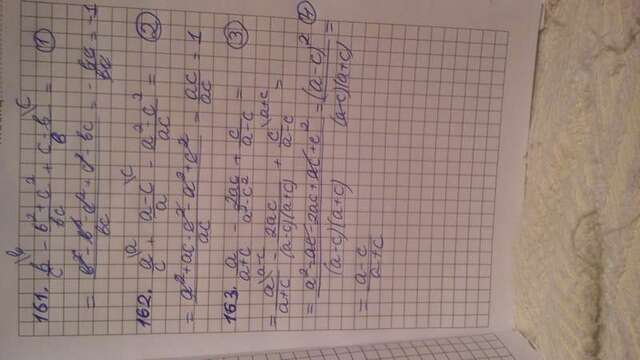 161. b/c \b - b²+c²/bc + c-b/b \c = ①
= b²-b²-c²+c²-bc/bc = - bc/bc = -1
162. a/c \a + a-c/a \c - a²-c²/ac = ②
= a²+ac-c²-a²+c²/ac = ac/ac = 1
163. a/a+c - 2ac/a²-c² + c/a-c = ③
= a/a+c \a-c - 2ac/(a-c)(a+c) + c/a-c \a+c =
= a²-ac-2ac+ac+c²/(a-c)(a+c) = (a-c)²/(a-c)(a+c) = ④
= a-c/a+c